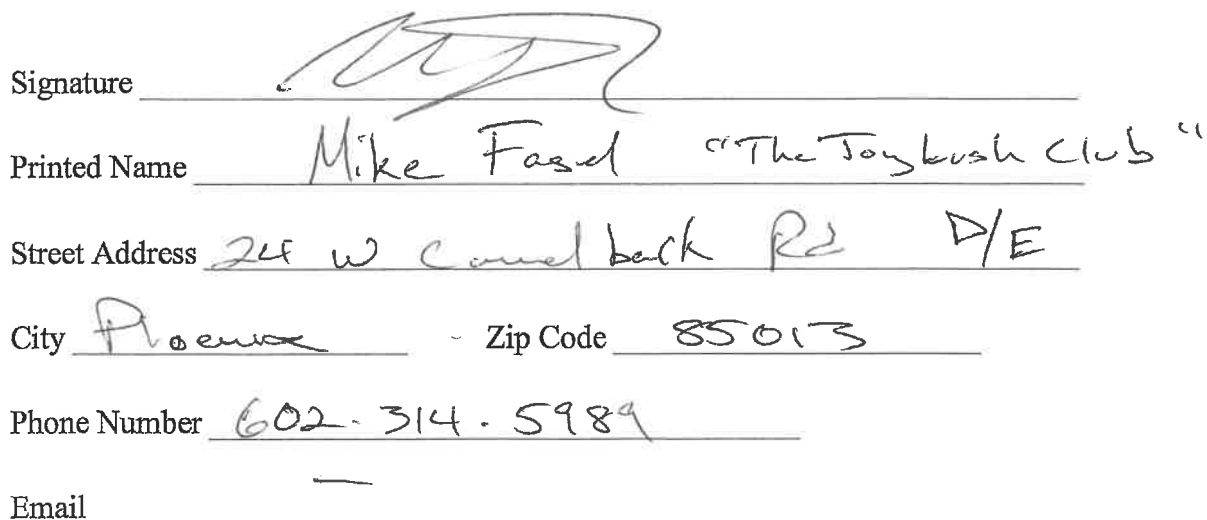 Signature
Printed Name Mike Fasel "The Joybush Club"
Street Address 24 W Camelback Rd D/E
City Phoenix - Zip Code 85013
Phone Number 602.314.5989
Email —